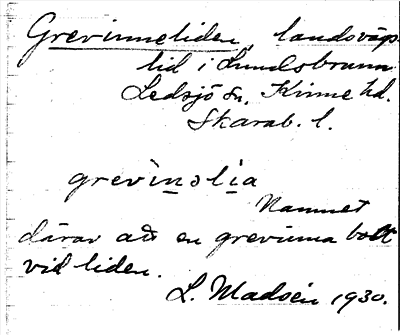 Grevinneliden, landsvägs
lid i Lundsbrunn
Ledsjö sn. Kinne hd.
Skarab. l.
grevìnslìa
Namnet
därav att en grevinna bott
vid liden.
L. Madsén 1930.